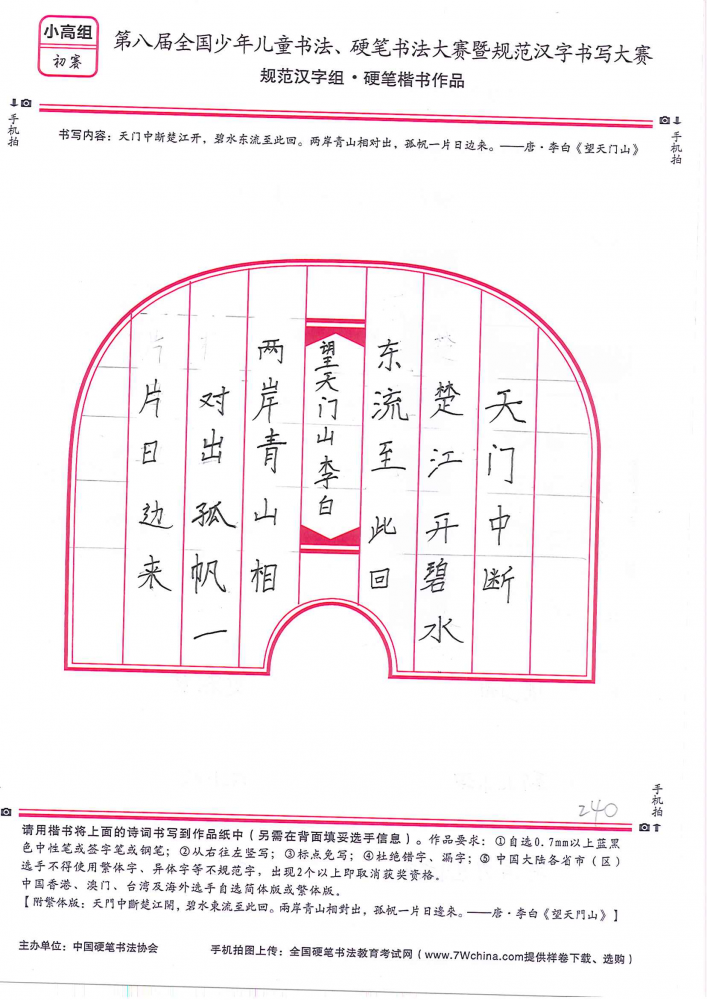 小高组
初赛
第八届全国少年儿童书法、硬笔书法大赛暨规范汉字书写大赛
规范汉字组·硬笔楷书作品
手机拍
手机拍
书写内容：天门中断楚江开，碧水东流至此回。两岸青山相对出，孤帆一片日边来。——唐·李白《望天门山》
天门中断
楚江开碧水
东流至此回
望天门山李白
两岸青山相
对出孤帆一
片日边来
240
手机拍
请用楷书将上面的诗词书写到作品纸中（另需在背面填妥选手信息）。作品要求：①自选0.7mm以上蓝黑
色中性笔或签字笔或钢笔；②从右往左竖写；③标点免写；④杜绝错字、漏字；⑤中国大陆各省市（区）
选手不得使用繁体字、异体字等不规范字，出现2个以上即取消获奖资格。
中国香港、澳门、台湾及海外选手自选简体版或繁体版。
【附繁体版：天門中斷楚江開，碧水東流至此回。兩岸青山相對出，孤帆一片日邊來。——唐·李白《望天門山》】
主办单位：中国硬笔书法协会
手机拍图上传：全国硬笔书法教育考试网（www.7Wchina.com提供样卷下载、选购）